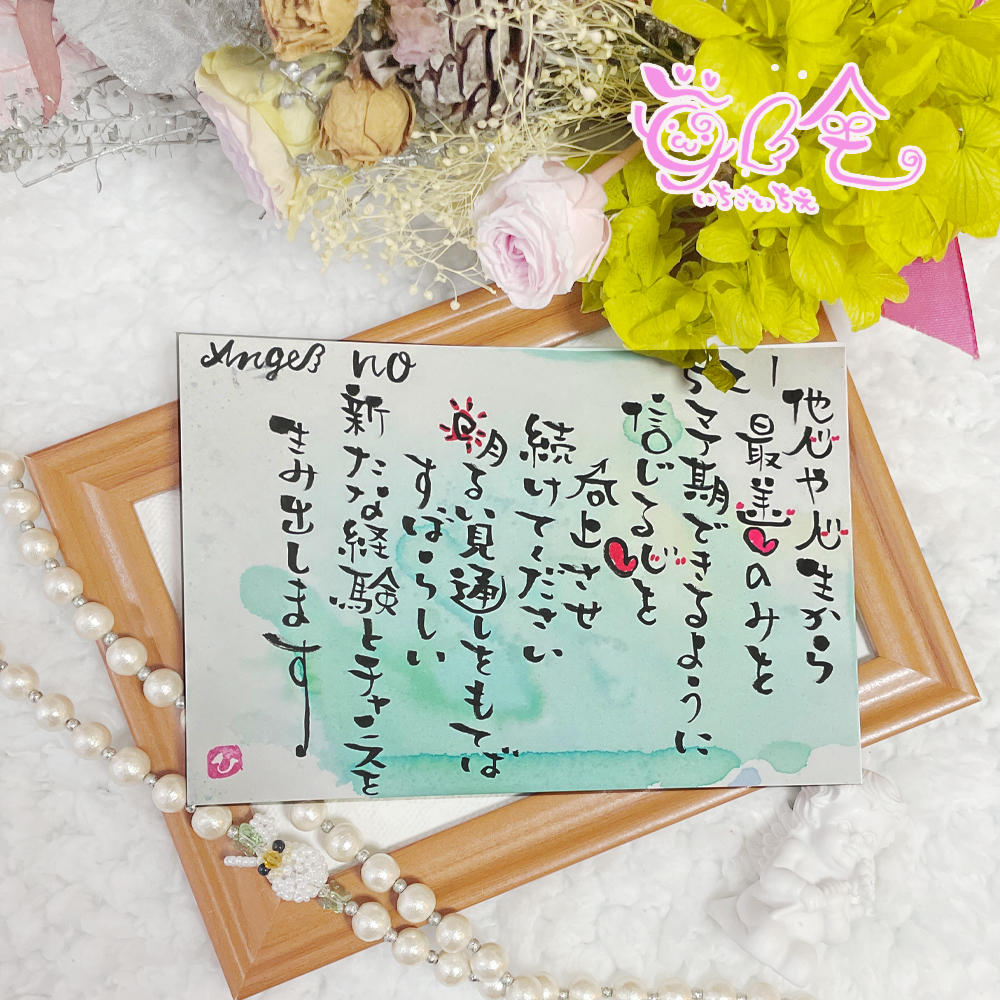 いちごいちえ
no
他人や人生から
最善のみを
期できるように
信じる心を
向上させ
続けてください
明るい見通しをもてば
すばらしい
新たな経験とチャンスを
み出します